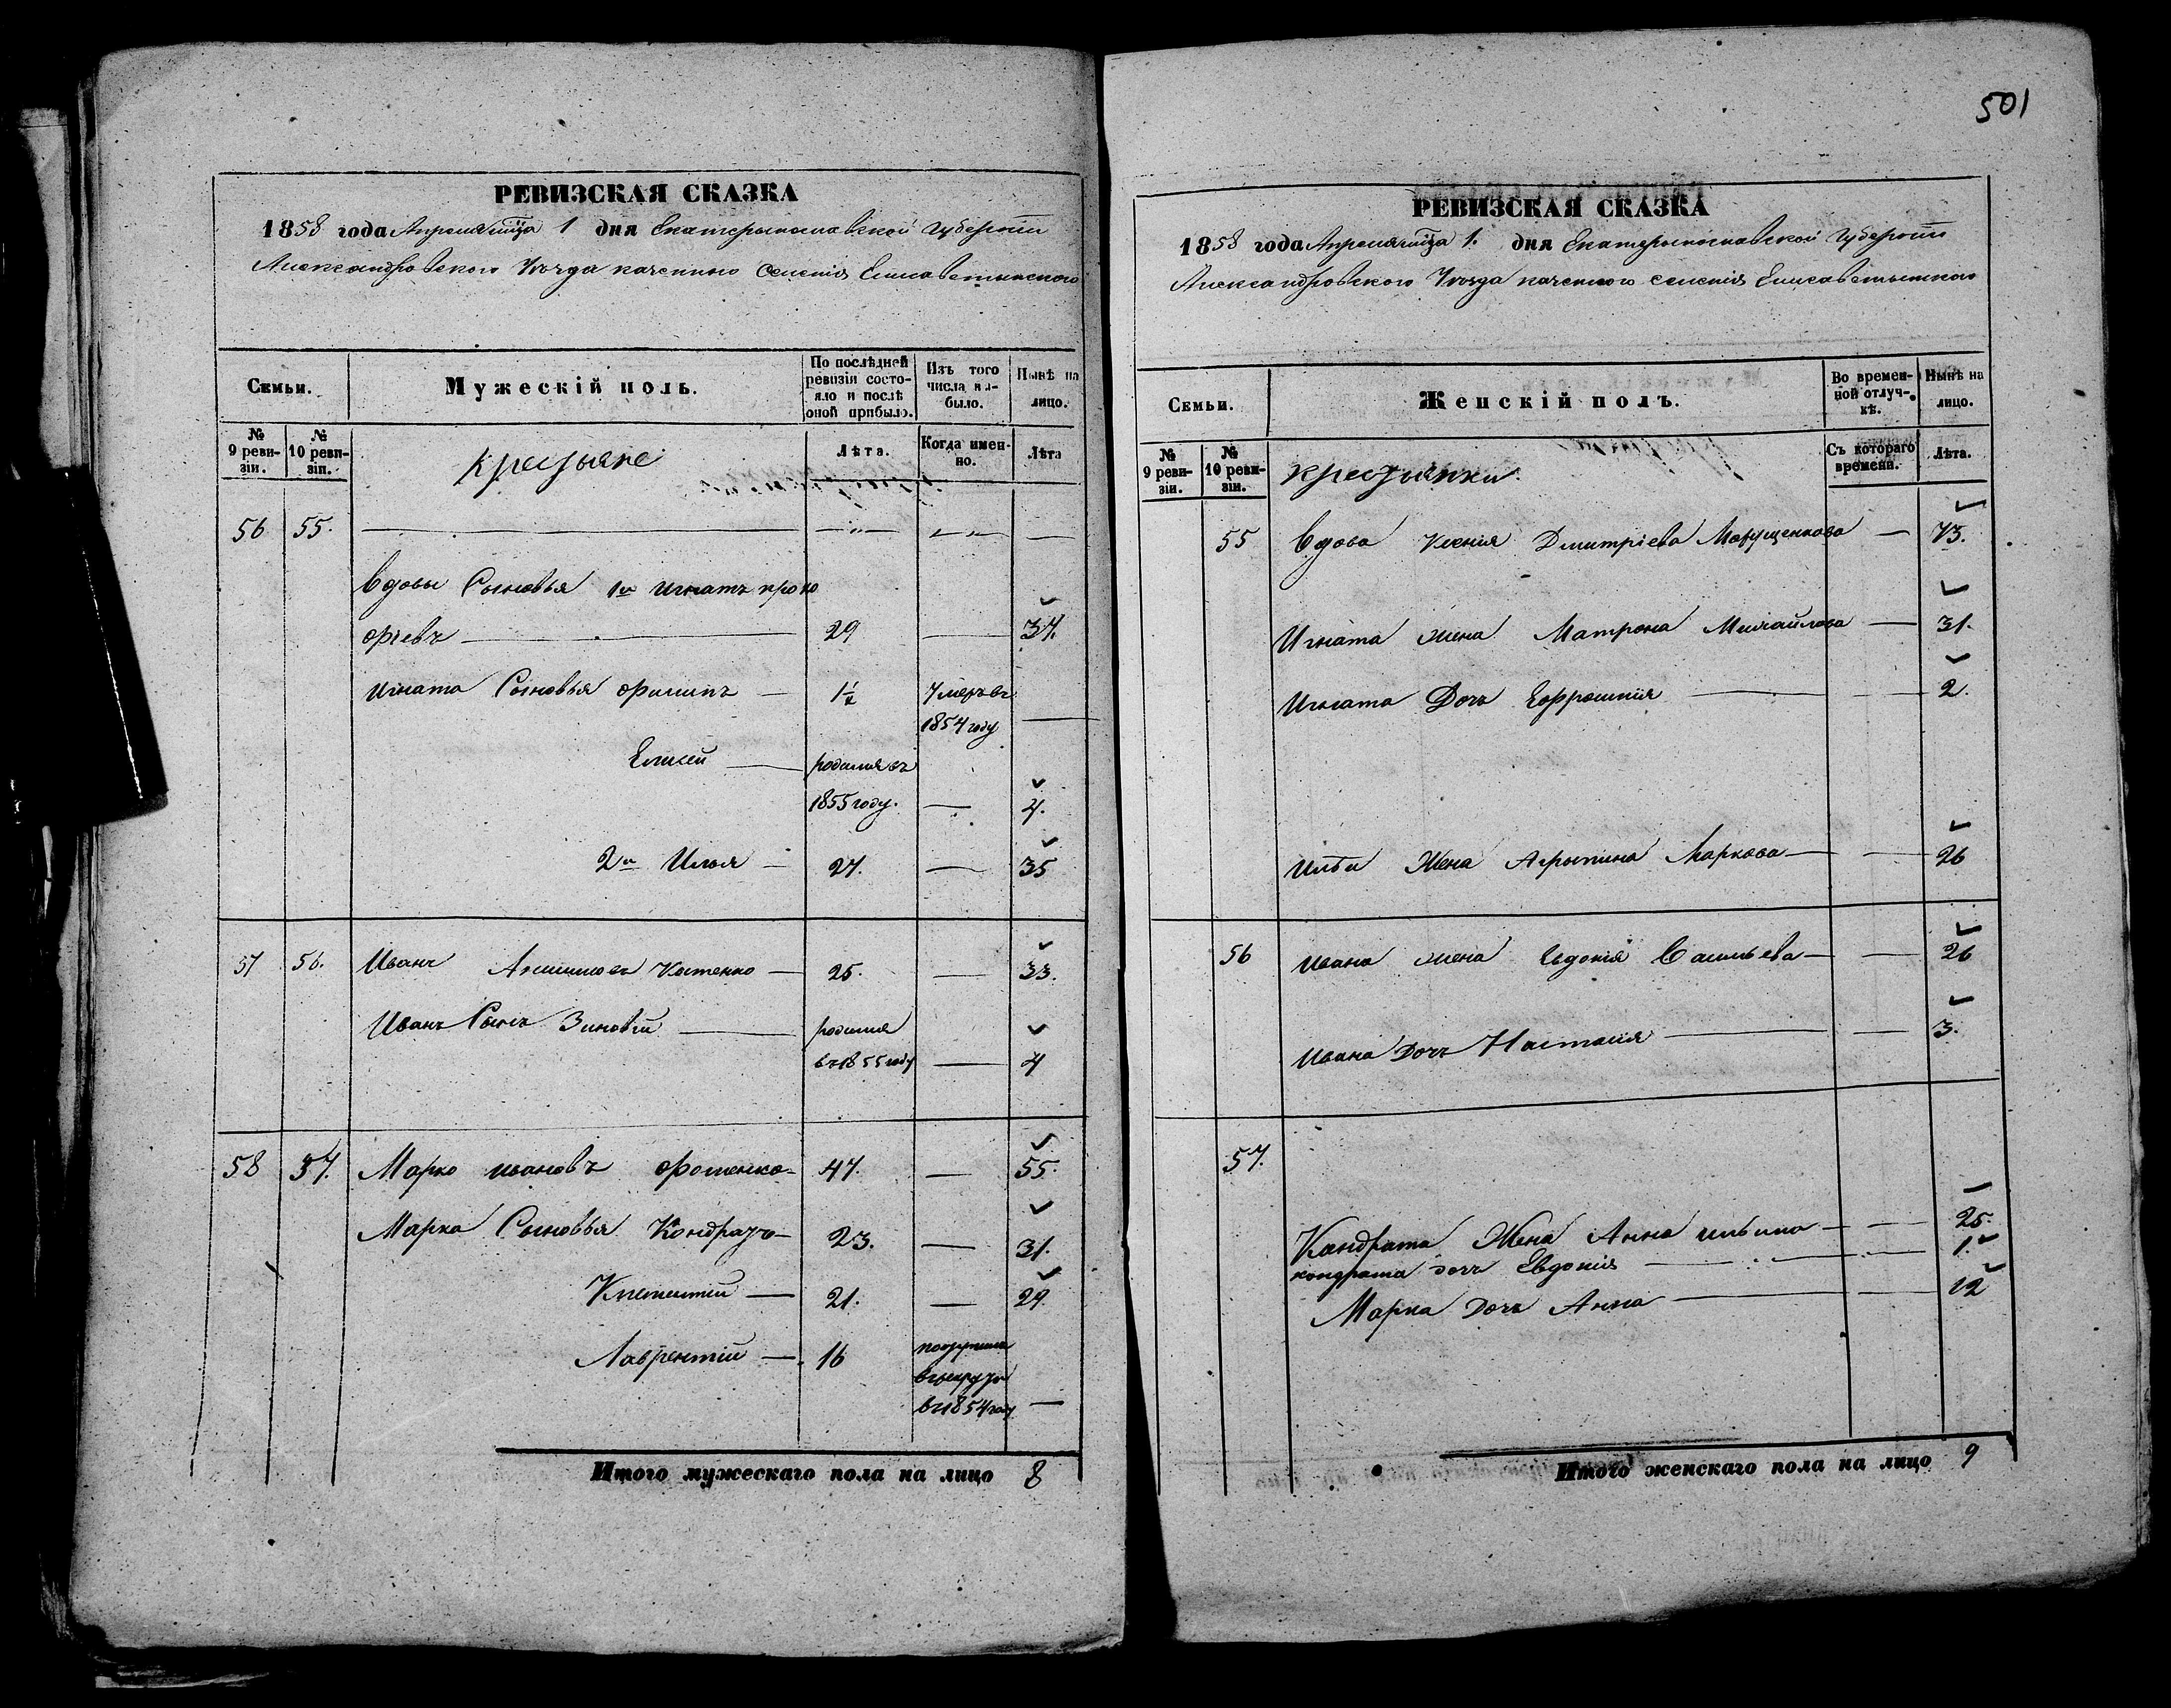 501
РЕВИЗСКАЯ СКАЗКА
1858 года Апреля мѣсяца 1 дня Екатеринославской Губернiи
Александровского Уѣзда казенного селенiя Елисаветинского
Семьи. Мужескiй полъ. По послѣдней ревизiи состояло и послѣ оной прибыло. Изъ того числа выбыло. Нынѣ на лицо.
№ 9 ревизiи. № 10 ревизiи. крестьяне Лѣта. Когда именно. Лѣта
56 55. — — —
вдовы Сыновья 1й Игнатъ проко
фiевъ — 29 — 37.
Игната Сыновья Филипъ — 1½ Умеръ въ
1854 году —
Елисей — родился въ
1855 году. — 4.
2й Илья — 27. — 35
57 56. Иванъ Костенко — 25. — 33.
Иванъ Сынъ Зиновiй — родился
въ 1855 году — 4
58 57. Марко ивановъ Фоменко — 47. — 55.
Марка Сыновья Кондратъ — 23. — 31.
Климентiй — 21. — 29.
Лаврентiй — 16 поступилъ
в рекруты
въ 1854 году —
Итого мужескаго пола на лицо 8
РЕВИЗСКАЯ СКАЗКА
1858 года Апреля мѣсяца 1. дня Екатеринославской Губернiи
Александровского Уѣзда казенного селенiя Елисаветинского
Семьи. Женскiй полъ. Во временной отлучкѣ. Нынѣ на лицо.
№ 9 ревизiи. № 10 ревизiи. крестьянки. Съ котораго времени. Лѣта.
55 Вдова Ксенiя Дмитрiева Марущенкова — 73.
Игната жена Матрона Михайлова — 31.
Игната Дочь Ефросинiя — 2.
Ильи Жена Агрыпина Маркова — 26
56 Ивана жена Евдокiя Васильева — 26
Ивана Дочь Настасiя — 3.
57.
Кандрата Жена Анна ильина — 25.
кондрата дочь Евдокiя — 1.
Марка Дочь Анна — 12
Итого женскаго пола на лицо 9